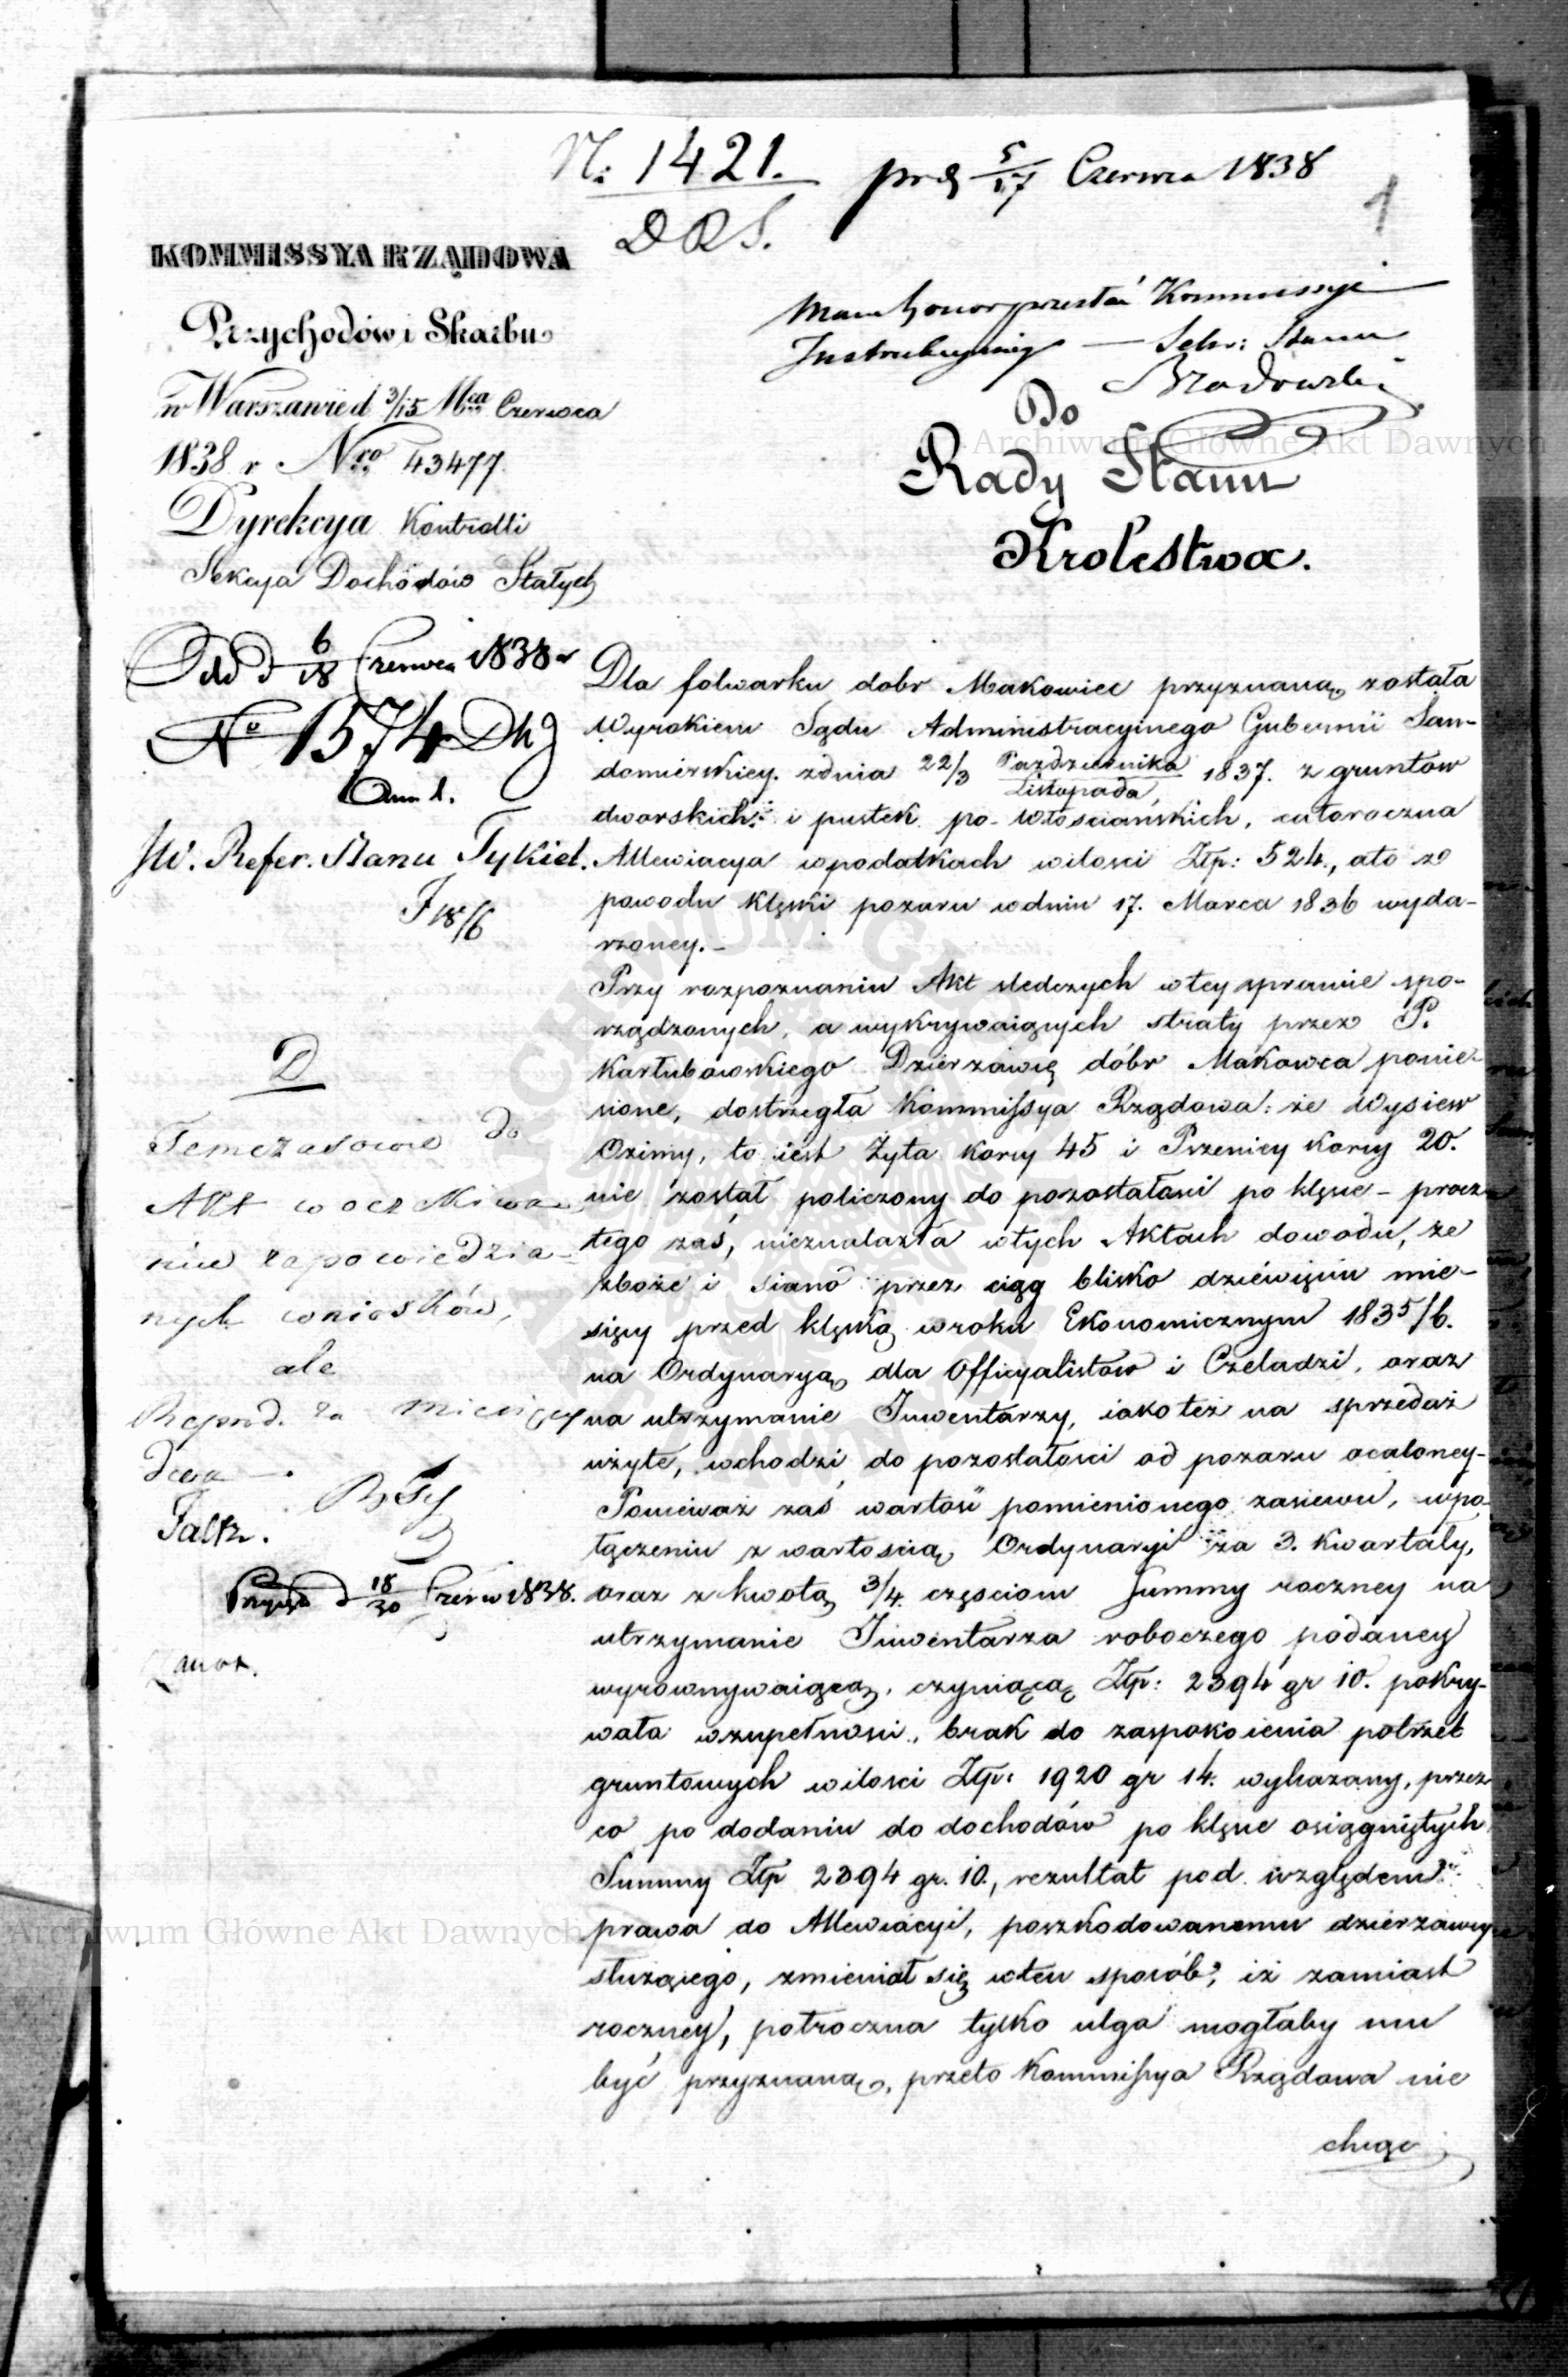 N: 1421.
DRS.
prd 5/17 Czerwca 1838
1
KOMMISSYA RZĄDOWA
Przychodów i Skarbu
w Warszawie d 3/15 Mca Czerwca
1838 r Nro 43477
Dyrekcya Kontrolli
Sekcya Dochodów Stałych
Mam honor przesłać Kommissyi
Instrukcyiney — Sekr: Stanu
Do
Rady Stanu
Krolestwa.
6/18 Czerwca 1838 r
No 1574
JW. Refer. Stanu Tykiel.
18/6
D
Temczasowie do
Akt w oczekiwa-
niu zapowiedzia-
nych wniosków,
ale
Reprod. za miesięcy
dwa.
18/30 Czerw 1838.
Dla folwarku dobr Makowiec przyznaną została
Wyrokiem Sądu Administracyinego Gubernii San-
domierskiey. zdnia 22/3 Pazdziernika/Listopada 1837. z gruntow
dworskich i pustek po-Włosciańskich, całoroczna
Allewiacya wpodatkach wilosci Złp: 524., ato z
powodu klęski pozaru wdniu 17. Marca 1836 wyda-
rzoney.-
Przy rozpoznaniu Akt sledczych wtey sprawie spo-
rządzonych, a wykrywaiących straty przez P.
Karłubowskiego Dzierzawię dóbr Makowca ponie-
sione, dostrzegła Kommissya Rządowa: że Wysiew
Ozimy, to iest Żyta Korcy 45 i Pszenicy Korcy 20.
nie został policzony do pozostałosci po klęsce - procz
tego zaś, nieznalazła wtych Aktach dowodu, że
zboże i siano przez ciąg blisko dziéwięciu mie-
sięcy przed klęską wroku Ekonomicznym 1835/6.
na Ordynaryą dla Officyalistow i Czeladzi, oraz
na utrzymanie Inwentarzy, iako też na sprzedaż
użyte, wchodzi do pozostałosci od pozaru ocaloney-
Ponieważ zaś wartość pomienionego zasiewu, wpo-
łączeniu z wartoscią Ordynaryi za 3. kwartały,
oraz z kwotą 3/4 częsciom Summy roczney na
utrzymanie Inwentarza roboczego podaney
wyrownywaiącą, czyniącą Złp: 2394 gr 10. pokry-
wała wzupełnosci, brak do zaspokoienia potrzeb
gruntowych wilosci Złp: 1920 gr 14. wykazany, przez
co po dodaniu do dochodów po klęsce osiągniętych
Summy Złp 2394 gr. 10., rezultat pod względem
prawa do Allewiacyi, poszkodowanemu dzierzawcy
służącego, zmieniał się wten sposób, iż zamiast
roczney, połroczna tylko ulga mogłaby mu
być przyznaną, przeto Kommissya Rządowa nie
chcąc
Archiwum Główne Akt Dawnych
Archiwum Główne Akt Dawnych